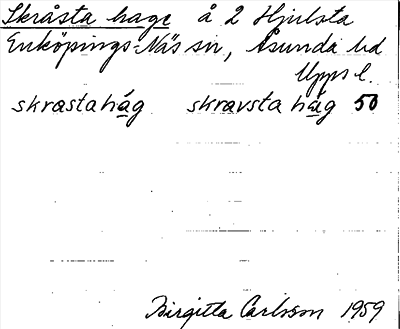 Skråsta hage å 2 Hjulsta
Enköpings-Näs sn, Åsunda hd
Upps l.
skrastahág skravsta häg 50
Birgitta Carlsson 1959